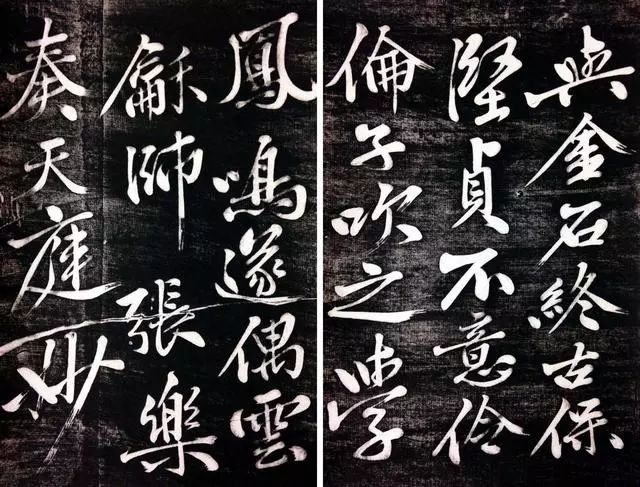 與金石終古保
堅貞不意伶
倫子吹之學
鳳鳴遂偶雲
龢師張樂
奏天庭妙